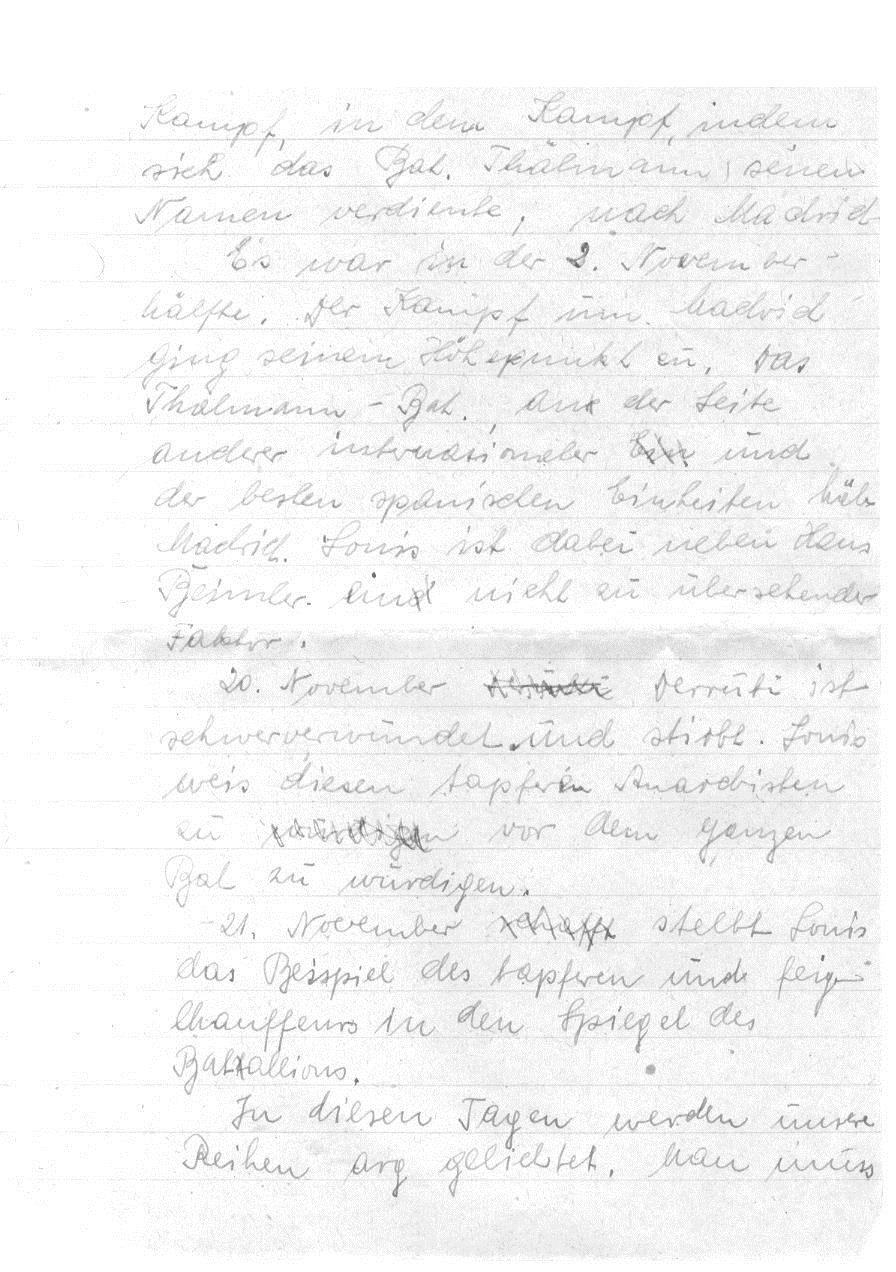 Kampf, in dem Kampf, indem
sich das Bat. Thälmann seinen
Namen verdiente, nach Madrid
Es war in der 2. November-
hälfte. Der Kampf um Madrid
ging seinem Höhepunkt zu. Das
Thälmann-Bat., an der Seite
anderer internasionaler und
der besten spanischen Einheiten hält
Madrid. Louis ist dabei neben Hans
Beimler ein nicht zu übersehender
Faktor.
20. November Derruti ist
schwerverwundet und stirbt. Louis
weis diesen tapferen Anarchisten
zu vor dem ganzen
Bat zu würdigen.
-21. November stellt Louis
das Beispiel des tapferen und feigen
Chauffeurs in den Spiegel des
Batallions.
In diesen Tagen werden unsere
Reihen arg gelichtet. Man muss